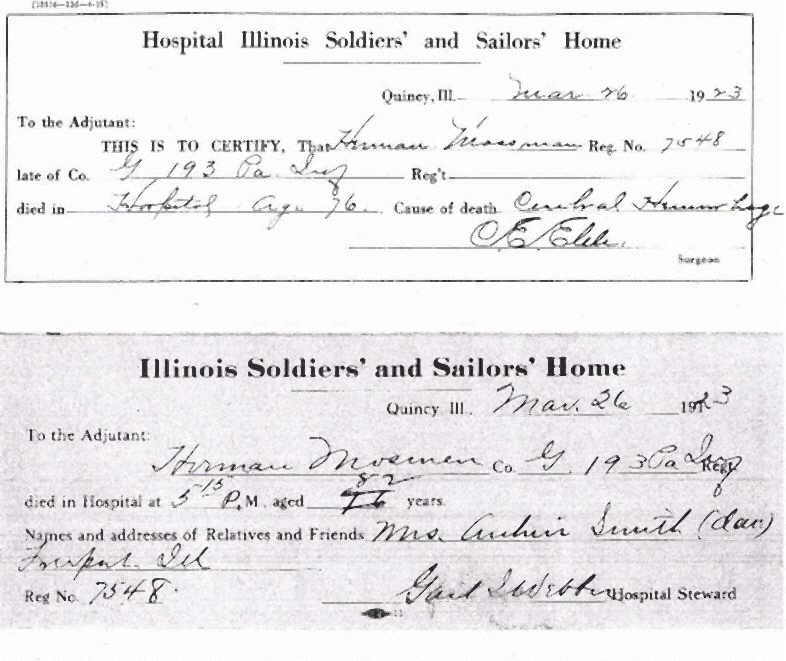 Hospital Illinois Soldiers' and Sailors' Home
Quincy, Ill. Mar 26 1923
To the Adjutant:
THIS IS TO CERTIFY, That Herman Mossman Reg. No. 7548
late of Co. G 193 Pa Inf Reg't
died in Hospital Age 76. Cause of death Cerebral Hemorrhage
C. E.
Surgeon
Illinois Soldiers' and Sailors' Home
Quincy Ill. Mar. 26 1923
To the Adjutant:
Herman Mosmen Co. G. 193 Pa Inf Regt
82
died in Hospital at 5 15 P.M. aged 76 years.
Names and addresses of Relatives and Friends Mrs. Arthur Smith (dau)
Freeport. Ill
Reg No. 7548. Gail Webber Hospital Steward